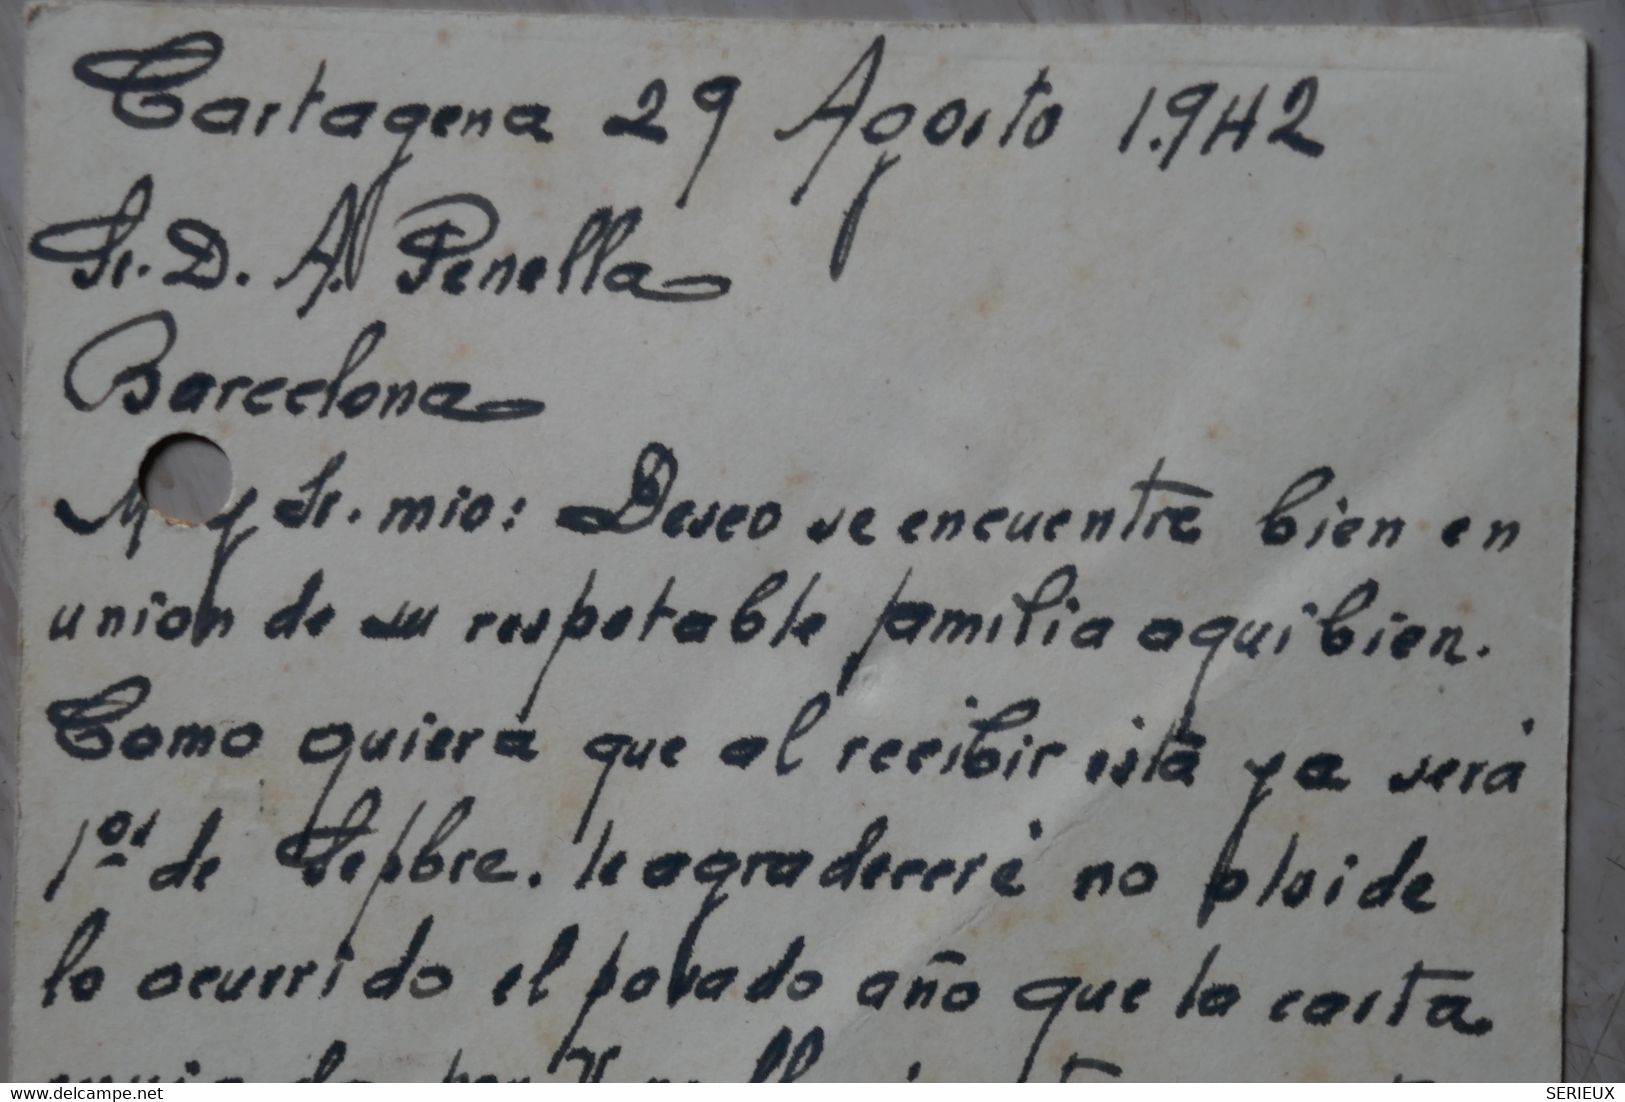 Cartagena 29 Agosto 1.942
Sr. D. A. Penella
Barcelona
M y Sr. mio: Deseo se encuentre bien en
unión de su respetable familia aqui bien.
Como quiera que al recibir está ya será
1os de Sepbre. le agradeceré no olvide
lo ocurrido el pasado año que la carta
por V.
delcampe.net
SERIEUX